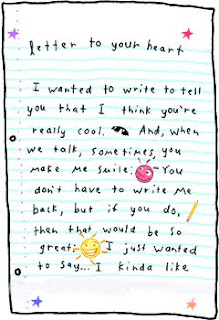 letter to your heart
I wanted to write to tell
you that I think you're
really cool. And, when
we talk, sometimes, you
make me smile. You
don't have to write me
back, but if you do,
then that would be so
great. I just wanted
to say... I kinda like